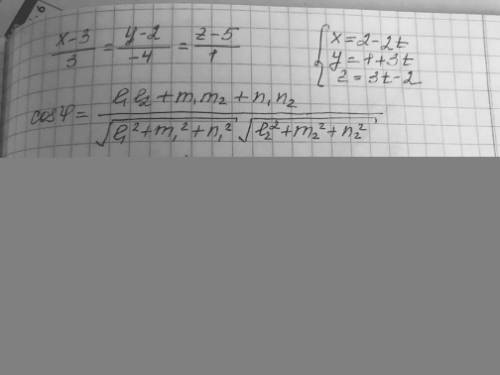 (x-3)/3 = (y-2)/-4 = (z-5)/1
{ x=2-2t
y=1+3t
z=3t-2
cosφ = (l₁l₂+m₁m₂+n₁n₂)/(√(l₁²+m₁²+n₁²) √(l₂²+m₂²+n₂²))